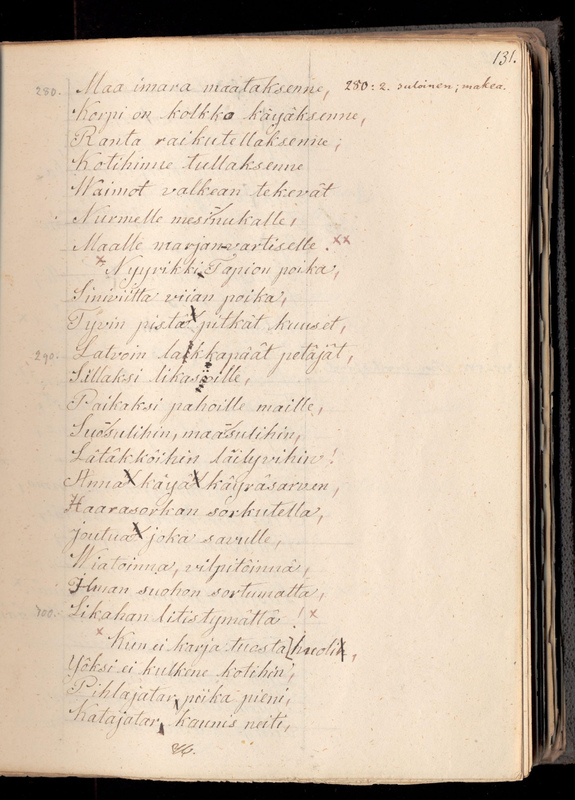 131.
280. Maa imara maataksenne, 280: 2. suloinen; makea.
Korpi on kolkko käyäksenne,
Ranta raikutellaksenne;
Kotihinne tullaksenne
Waimot valkean tekevät
Nurmelle mesinukalle,
Maalle marjanvartiselle. xx
x Nyyrikki, Tapion poika,
Siniviitta viian poika,
Tyvin pistä pitkät kuuset,
290. Latvoin lakkapäät petäjät,
Sillaksi likasoille,
Paikaksi pahoille maille,
Suosulihin, maasulihin,
Lätäkköihin läilyvihin!
Anna käyä käyräsarven,
Haarasorkan sorkutella,
joutua joka savulle,
Wiatoinna, vilpitöinnä,
Ilman suohon sortumatta,
300. Likahan litistymättä! x
x Kun ei karja tuosta huoli,
Yöksi ei kulkene kotihin,
Pihlajatar, piika pieni,
Katajatar, kaunis neiti,